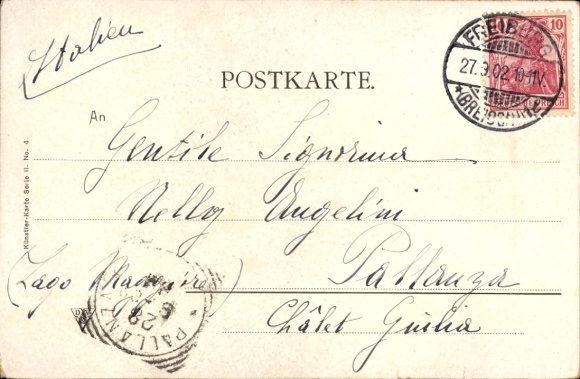 Italien
POSTKARTE.
An
Gentile Signorina
Nelly Angelini
(Lago Maggiore) Pallanza
Châlet Giulia
Künstler-Karte Serie II. No. 4.
FREIBURG
27.9.02.10-11V.
*(BREISGAU)
10
PALLANZA
28